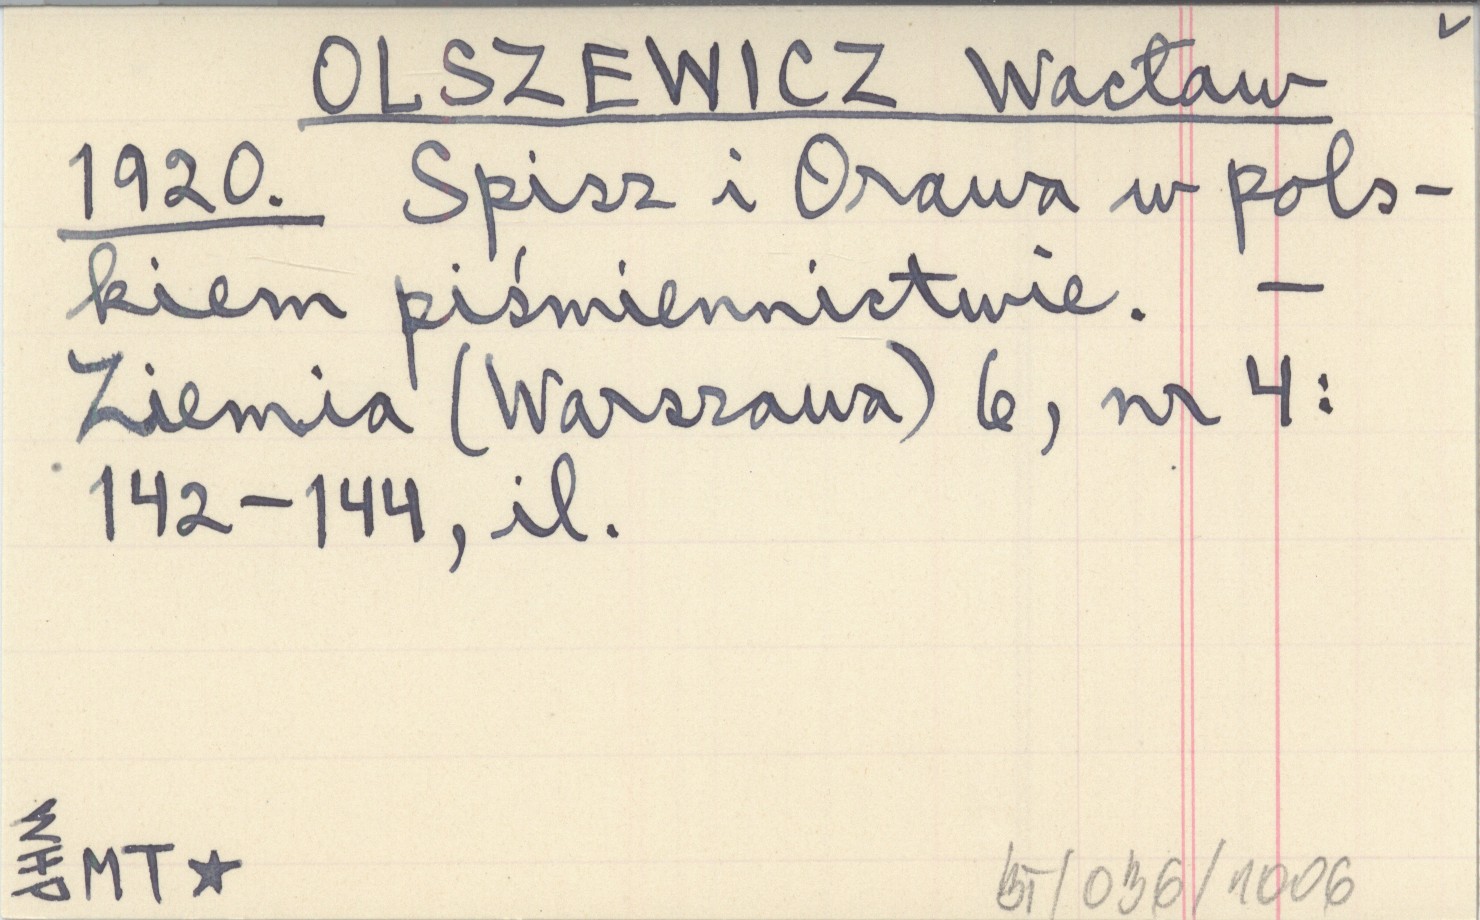 OLSZEWICZ Wacław
1920. Spisz i Orawa w pols-
kiem piśmiennictwie. —
Ziemia (Warszawa) 6, nr 4:
142-144, il.
WHP
MT ★
/036/1006